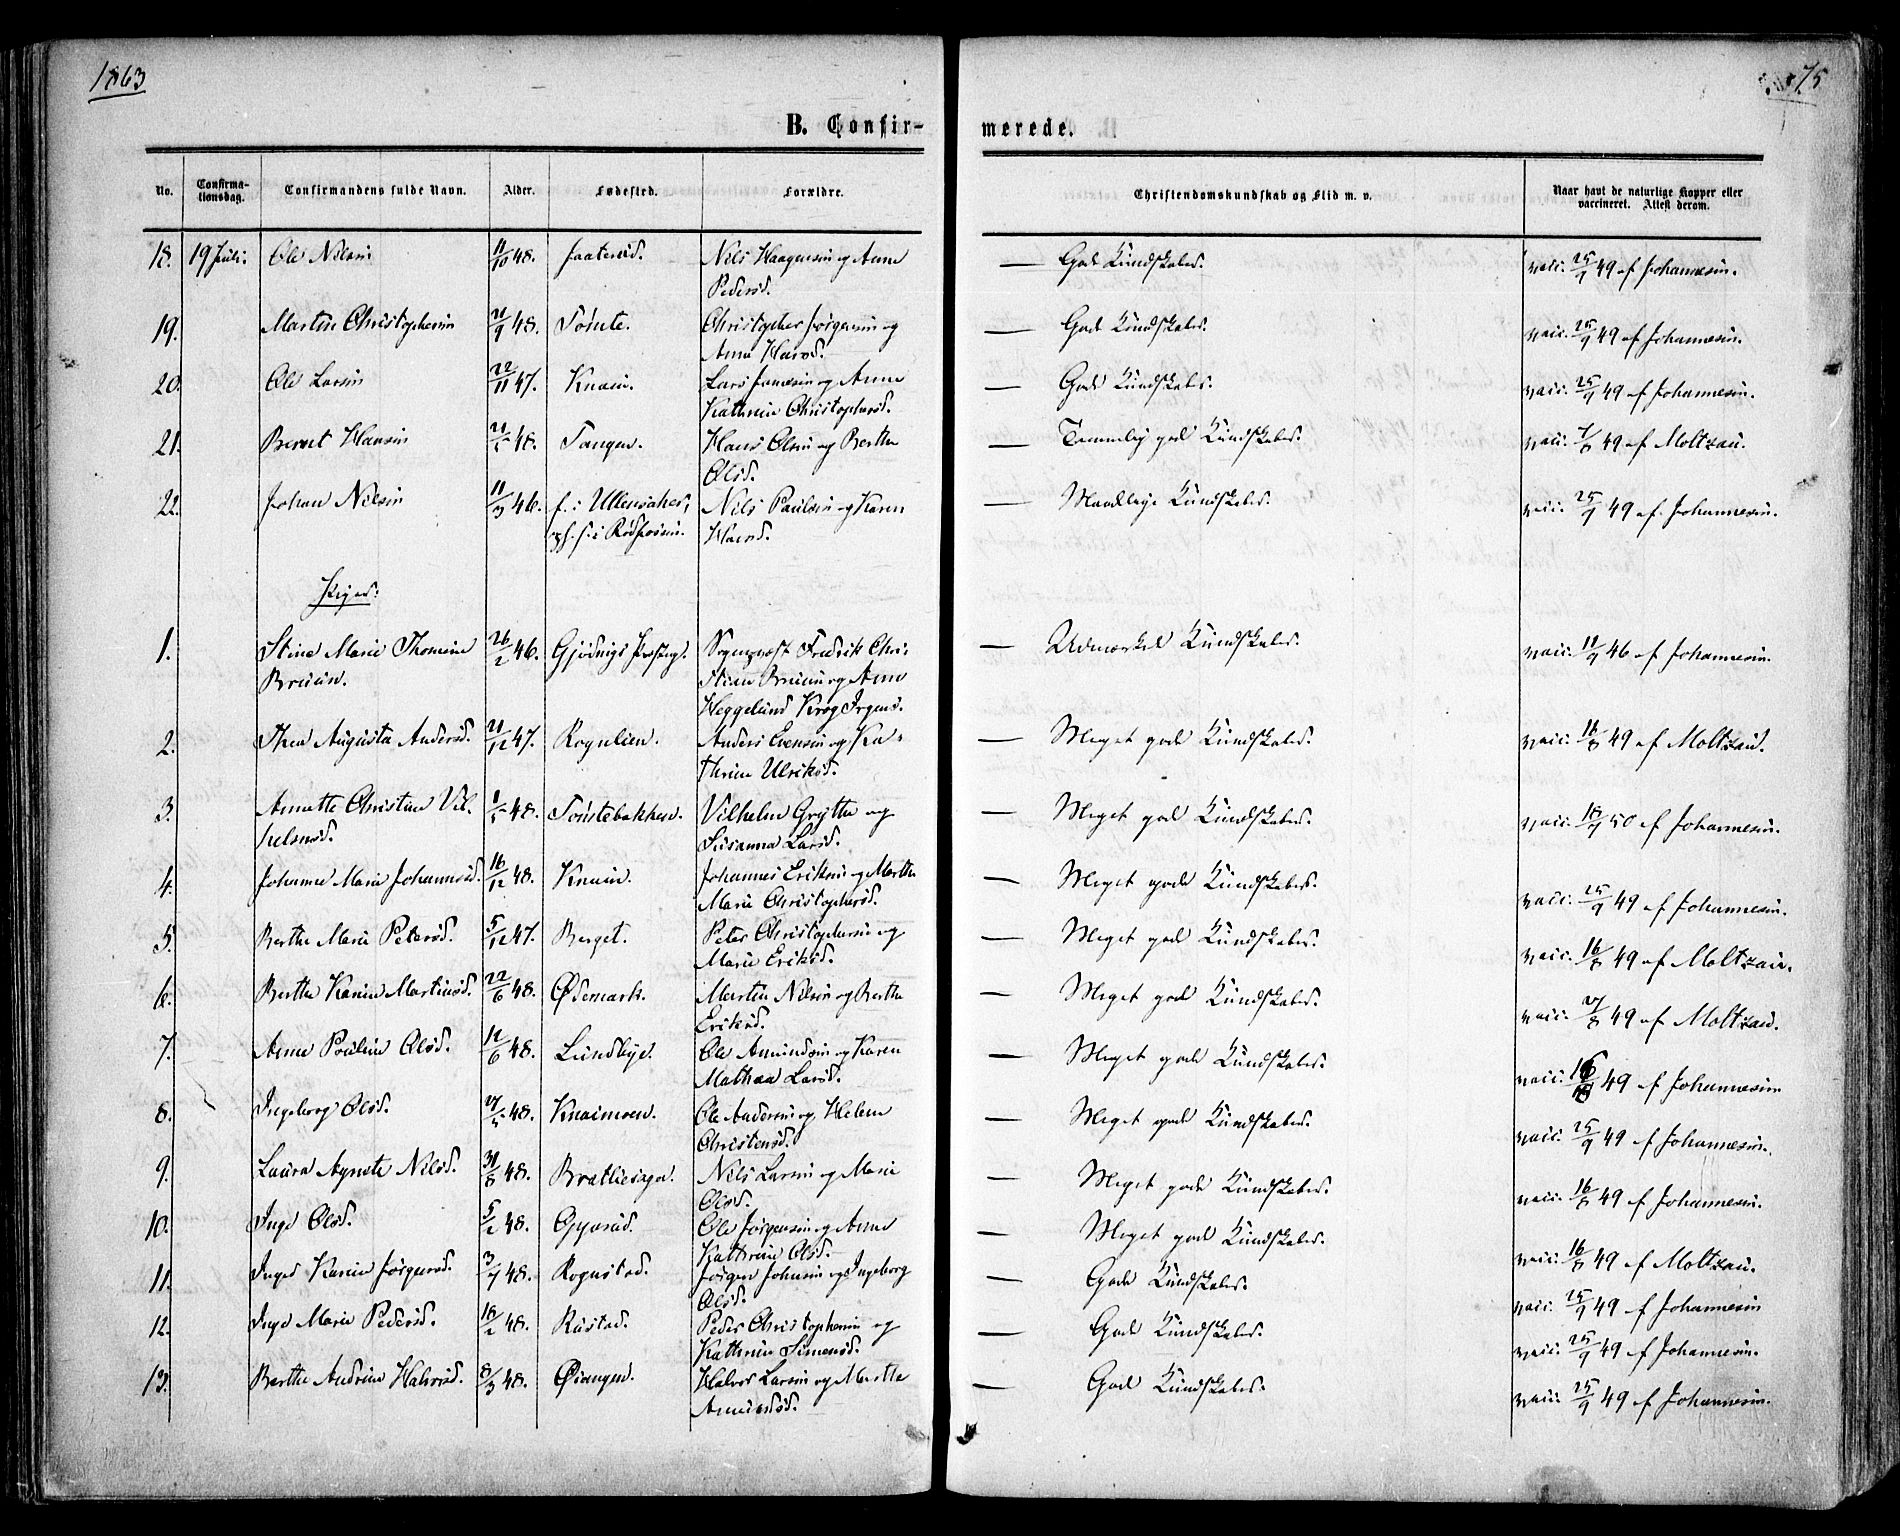 1863
75
B. Confir-
merede.
No.
Confirma-
tionsdag.
Confirmandens fulde Navn.
Alder.
Fødested.
Forældre.
Christendomskundskab og Flid m. v.
Naar havt de naturlige Kopper eller
vaccineret. Attest derom.
18. 19 Juli. Ole Nilsen 11/10 48. Nils Haagensen og Anne — God Kundskabs. vacc. 25/9 49 af Johannesen.
Pedersd.
19. Martin Christophersen 21/9 48. Tømte. Christopher Jørgensen og — God Kundskabs. vacc. 25/9 49 af Johannesen.
Anne Hansd.
20. Ole Larsen 22/11 47. Knain. Lars Jonesen og Anne — God Kundskabs. vacc. 25/9 49 af Johannesen.
Kathrine Christophersd.
21. Bernt Hansen 48. Tangen. Hans Olsen og Berthe — Temmelig god Kundskabs. vacc. 7/8 49 af Moltzau.
Olsd.
22. Johan Nilsen 11/3 46. f. i Ullensaker, Nils Paulsen og Karen — Maadelige Kundskabs. vacc. 25/9 49 af Johannesen.
Hansd.
Piger:
1. Stine Marie Thomine 26/2 46. Gjødnings Præstegd. Sognepræst Fredrik Chri- — Udmærket Kundskabs. vacc. 11/9 46 af Johannesen.
Bruun. stian Bruun og Anne
Heggelund Krog Irgens.
2. Thea Augusta Andersd. 21/12 47. Rognlien. Anders Evensen og Ka- — Meget god Kundskabs. vacc. 16/8 49 af Moltzau.
thrine Ulriksd.
3. Annette Christine Vil- 48. Tømtebakken. Vilhelm Grytte og — Meget god Kundskabs. vacc. 18/9 50 af Johannesen.
helmsd. Susanna Larsd.
4. Johanne Marie Johannesd. 16/12 48. Knain. Johannes Eriksen og Marthe — Meget god Kundskabs. vacc. 25/9 49 af Johannesen.
Marie Christophersd.
5. Berthe Marie Petersd. 5/12 47. Berget. Peter Christophersen og — Meget god Kundskabs. vacc. 16/8 49 af Moltzau.
Marie Eriksd.
6. Berthe Karine Martinsd. 22/6 48. Ødemark. Martin Nilsen og Berthe — Meget god Kundskabs. vacc. 49 af Moltzau.
Eriksd.
7. Anne Pauline Olsd. 12/6 48. Lundbye. Ole Amundsen og Karen — Meget god Kundskabs. vacc. 49 af Johannesen
Mathea Larsd.
8. Ingeborg Olsd. 48. Knaimoen. Ole Andersen og Helene — Meget god Kundskabs. vacc. 25/9 49 af Johannesen.
Christensd.
9. Laura Agnete Nilsd. 31/8 48. Bratliesagen. Nils Larsen og Marie — Meget god Kundskabs. vacc. 16/8 49 af Johannesen.
Olsd.
10. Inge Olsd. 5/2 48. Ole Jørgensen og Anne — Meget god Kundskabs. vacc. 16/8 49 af Moltzau.
Kathrine Olsd.
11. Inge Karine Jørgensd. 3/9 48. Rognstad. Jørgen Johnsen og Ingeborg — God Kundskabs. vacc. 25/9 49 af Johannesen
Olsd.
12. Inge Marie Pedersd. 18/2 48. Rustad. Peder Christophersen og — God Kundskabs. vacc. 25/9 49 af Johannesen.
Kathrine Simensd.
13. Berthe Andrine Halvorsd. 8/3 48. Øiangen. Halvor Larsen og Marthe — God Kundskabs. vacc. 25/9 49 af Johannesen.
Amundsd.